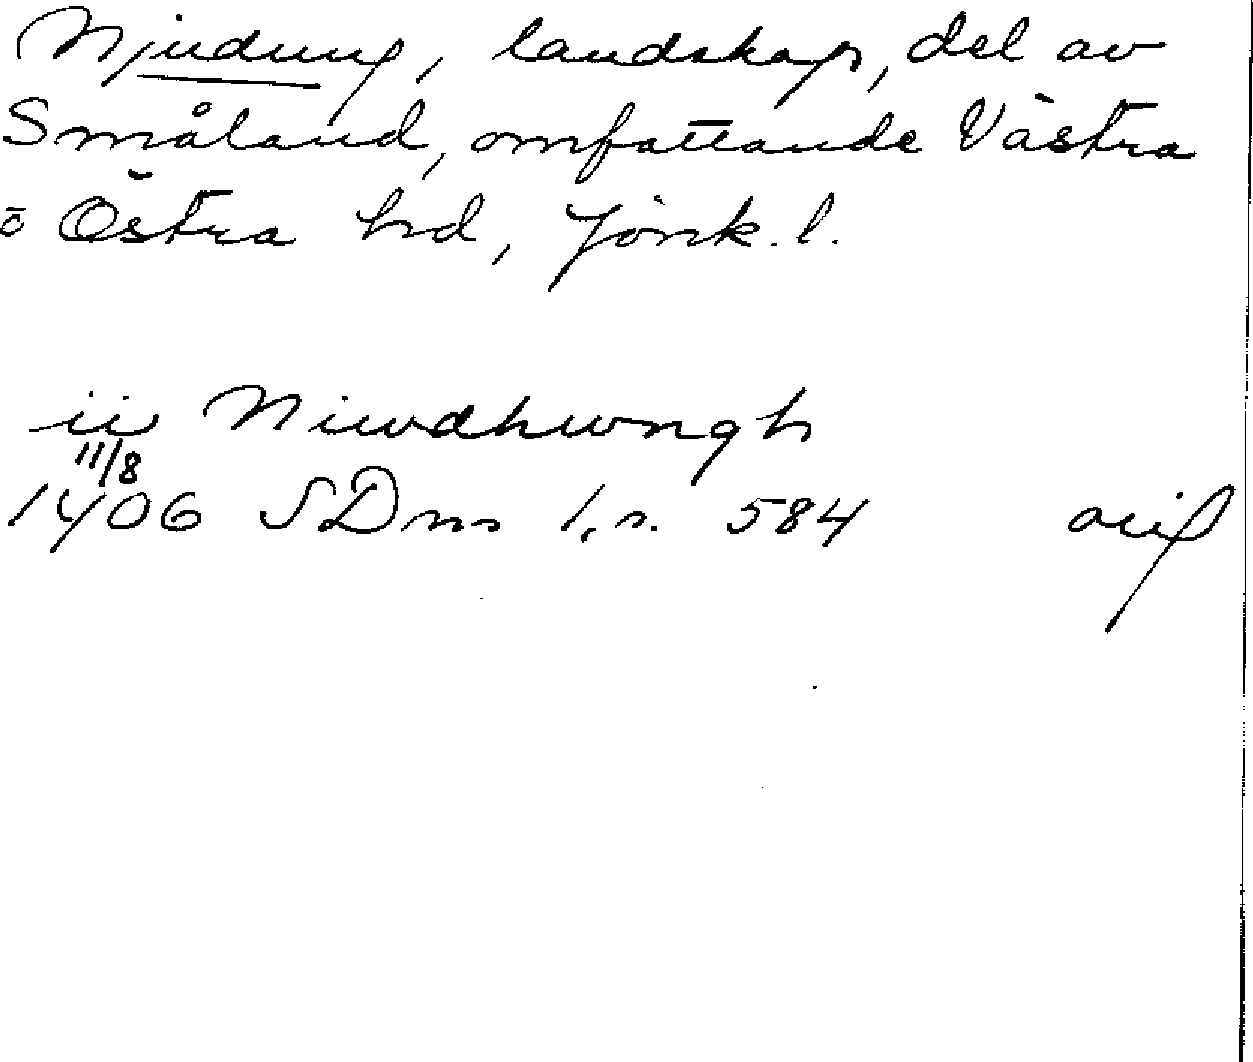 Njudung, landskap, del av
Småland, omfattande Västra
ö Östra hd, Jönk. l.
ii Niwdhwngh
11/8
1406 SDns 1, s. 584 orig